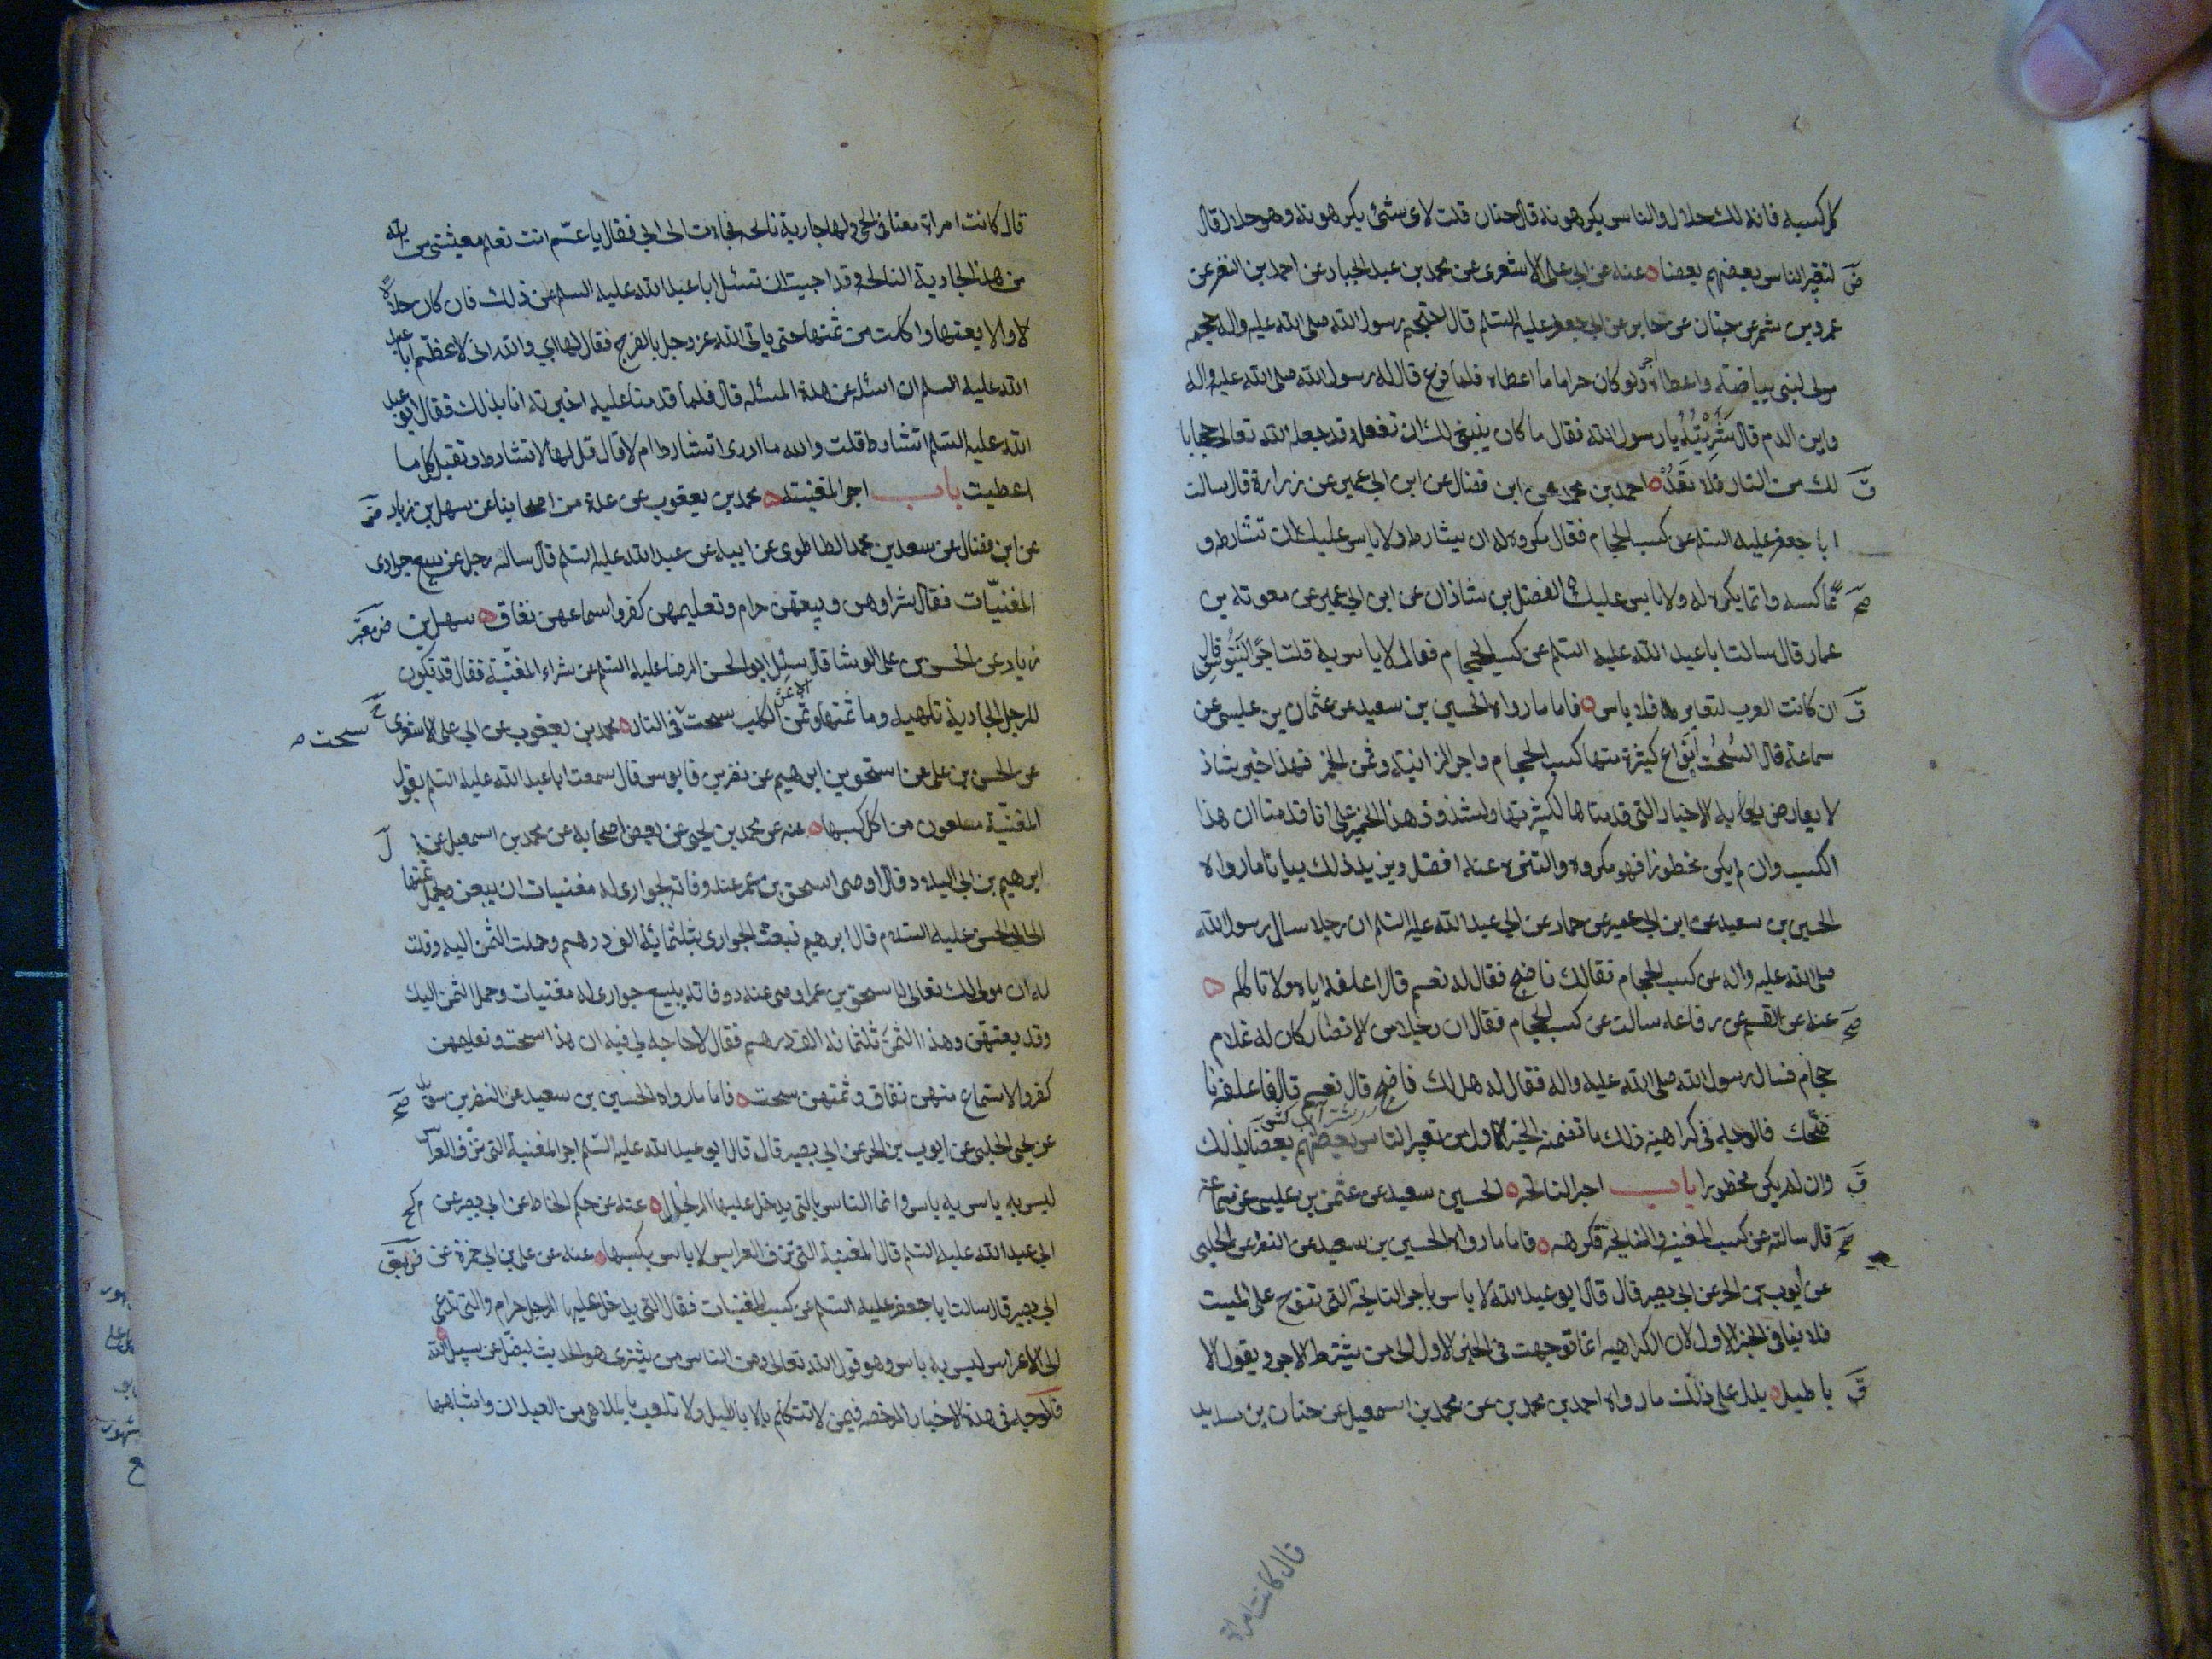 كل كسبه فانه لك حلال والناس يكرهونه قال حنان قلت لاى شئ يكرهونه وهو حلال قال
لتعيير الناس بعضهم بعضا عنه عن ابي على الاشعرى عن محمد بن عبد الجبار عن احمد بن النضر عن
عمرو بن شمر عن جابر عن ابي جعفر عليه السلم قال احتجم رسول الله صلى الله عليه واله حجمه
مولى لبنى بياضة واعطاه ولو كان حراما ما اعطاه فلما فرغ قال له رسول الله صلى الله عليه واله
واين الدم قال شربته يا رسول الله فقال ما كان ينبغى لك ان تفعل وقد جعله الله تعالى حجابا
لك من النار فلا تعد احمد بن محمد عن ابن فضال عن ابن ابي عمير عن زرارة قال سالت
ابا جعفر عليه السلم عن كسب الحجام فقال مكروه له ان يشارط ولا باس عليك ان تشارطه و
تماكسه وانما يكره له ولا باس عليك الفضل بن شاذان عن ابن ابي عمير عن معوية بن
عمار قال سالت ابا عبد الله عليه السلم عن كسب الحجام فقال لا باس به قلت اجر التيوس قال
ان كانت العرب لتعاير به فلا باس فاما ما رواه الحسين بن سعيد عن عثمان بن عيسى عن
سماعة قال السحت انواع كثيرة منها كسب الحجام واجر الزانية وثمن الخمر فهذا خبر شاذ
لا يعارض به الاخبار التي قدمناها لكثرتها ولشذوذ هذا الخبر على انا قدمنا ان هذا
الكسب وان لم يكن محظورا فهو مكروه والتنزه عنه افضل ويزيد ذلك بيانا ما رواه
الحسين بن سعيد عن ابن ابي عمير عن حماد عن ابي عبد الله عليه السلم ان رجلا سال رسول الله
صلى الله عليه واله عن كسب الحجام فقال لك ناضح فقال له نعم قال اعلفه اياه ولا تاكله
عنه عن القسم عن رفاعة سالت عن كسب الحجام فقال ان رجلا من الانصار كان له غلام
حجام فسال رسول الله صلى الله عليه واله فقال له هل لك ناضح قال نعم قال فاعلفه نا
ضحك فالوجه في كراهية ذلك ما تضمنه الخبر الاول من تعيير الناس بعضهم بعضا بذلك
وان لم يكن محظورا باب اجر النائحة الحسين سعيد عن عثمن بن عيسى عن سماعة
قال سالته عن كسب المغنية والنائحة فكرهه فاما ما رواه الحسين بن سعيد عن النضر عن الحلبى
عن ايوب بن الحر عن ابي بصير قال قال ابو عبد الله لا باس باجر النائحة التي تنوح على الميت
فلا ينافي الخبر الاول لان الكراهية انما توجهت في الخبر الاول الى من يشترط الاجر ويقول الا
باطيل يدل على ذلك ما رواه احمد بن محمد بن عن محمد بن اسمعيل عن حنان بن سدير
قال كانت امراة
قال كانت امراة معنا في الحي ولها جارية نائحة فجاءت الى ابي فقال يا عم انت تعلم معيشتى من الله
من هذه الجارية النائحة وقد احببت ان تسئل ابا عبد الله عليه السلم عن ذلك فان كان حلالا
والا بعتها واكلت من ثمنها حتى ياتى الله عز وجل بالفرج فقال لها ابي والله انى لاعظم ابا عبد
الله عليه السلم ان اسئله عن هذه المسئلة قال فلما قدمنا عليه اخبرته انا بذلك فقال ابو عبد
الله عليه السلم اتشارط قلت والله ما ادرى اتشارط ام لا قال قل لها لا تشارط وتقبل كل ما
اعطيت باب اجر المغنية محمد بن يعقوب عن عدة من اصحابنا عن سهل بن زياد
عن ابن فضال عن سعيد بن محمد الطاطرى عن ابيه عن عبد الله عليه السلم قال ساله رجل عن بيع جوارى
المغنيات فقال شراوهن وبيعهن حرام وتعليمهن كفر واسماعهن نفاق سهل بن
زياد عن الحسن بن على الوشا قال سئل ابو الحسن الرضا عليه السلم عن شراء المغنية فقال قد تكون
للرجل الجارية تلهيه وما ثمنها الا ثمن الكلب سحت في النار محمد بن يعقوب عن ابي على الاشعرى
سحت
عن الحسن بن على عن اسحق بن ابرهيم عن نضر بن قابوس قال سمعت ابا عبد الله عليه السلم يقول
المغنية ملعون من اكل كسبها عنه عن محمد بن يحيى عن بعض اصحابه عن محمد بن اسمعيل عن
ابرهيم بن ابي البلاد قال اوصى اسحق بن عمر عند وفاته بجوارى له مغنيات ان يبعن ويحمل ثمنها
الى ابي الحسن عليه السلام قال ابرهيم فبعث الجوارى بثلثمائة الف درهم وحملت الثمن اليه وقلت
له ان مولى لك يقال له اسحق بن عمر اوصى عند وفاته ببيع جوارى له مغنيات وحمل الثمن اليك
وقد بعتهن وهذا الثمن ثلثمائة الف درهم فقال لا حاجة لي فيه ان هذا سحت وتعليمهن
كفر والاستماع منهن نفاق وثمنهن سحت فاما ما رواه الحسين بن سعيد عن النضر بن سويد
عن يحيى الحلبى عن ايوب بن الحر عن ابي بصير قال قال ابو عبد الله عليه السلم اجر المغنية التي تزف العرائس
ليس به باس وانما الناس بالتى يدخل عليها الرجال عنه عن حكم الحناط عن ابي بصير عن
ابي عبد الله عليه السلم قال المغنية التي تزف العرايس لا باس بكسبها عنه عن على بن ابي حمزة عن
ابي بصير قال سالت ابا جعفر عليه السلم عن كسب المغنيات فقال التي يدخل عليها الرجل حرام والتي تدعى
الى الاعراس ليس به باس وهو قول الله تعالى ومن الناس من يشترى لهو الحديث ليضل عن سبيل الله
فالوجه في هذه الاخبار الرخصة فيمن لا تتكلم بالاباطيل ولا تلعب بالملاهى من العيدان واشباهها